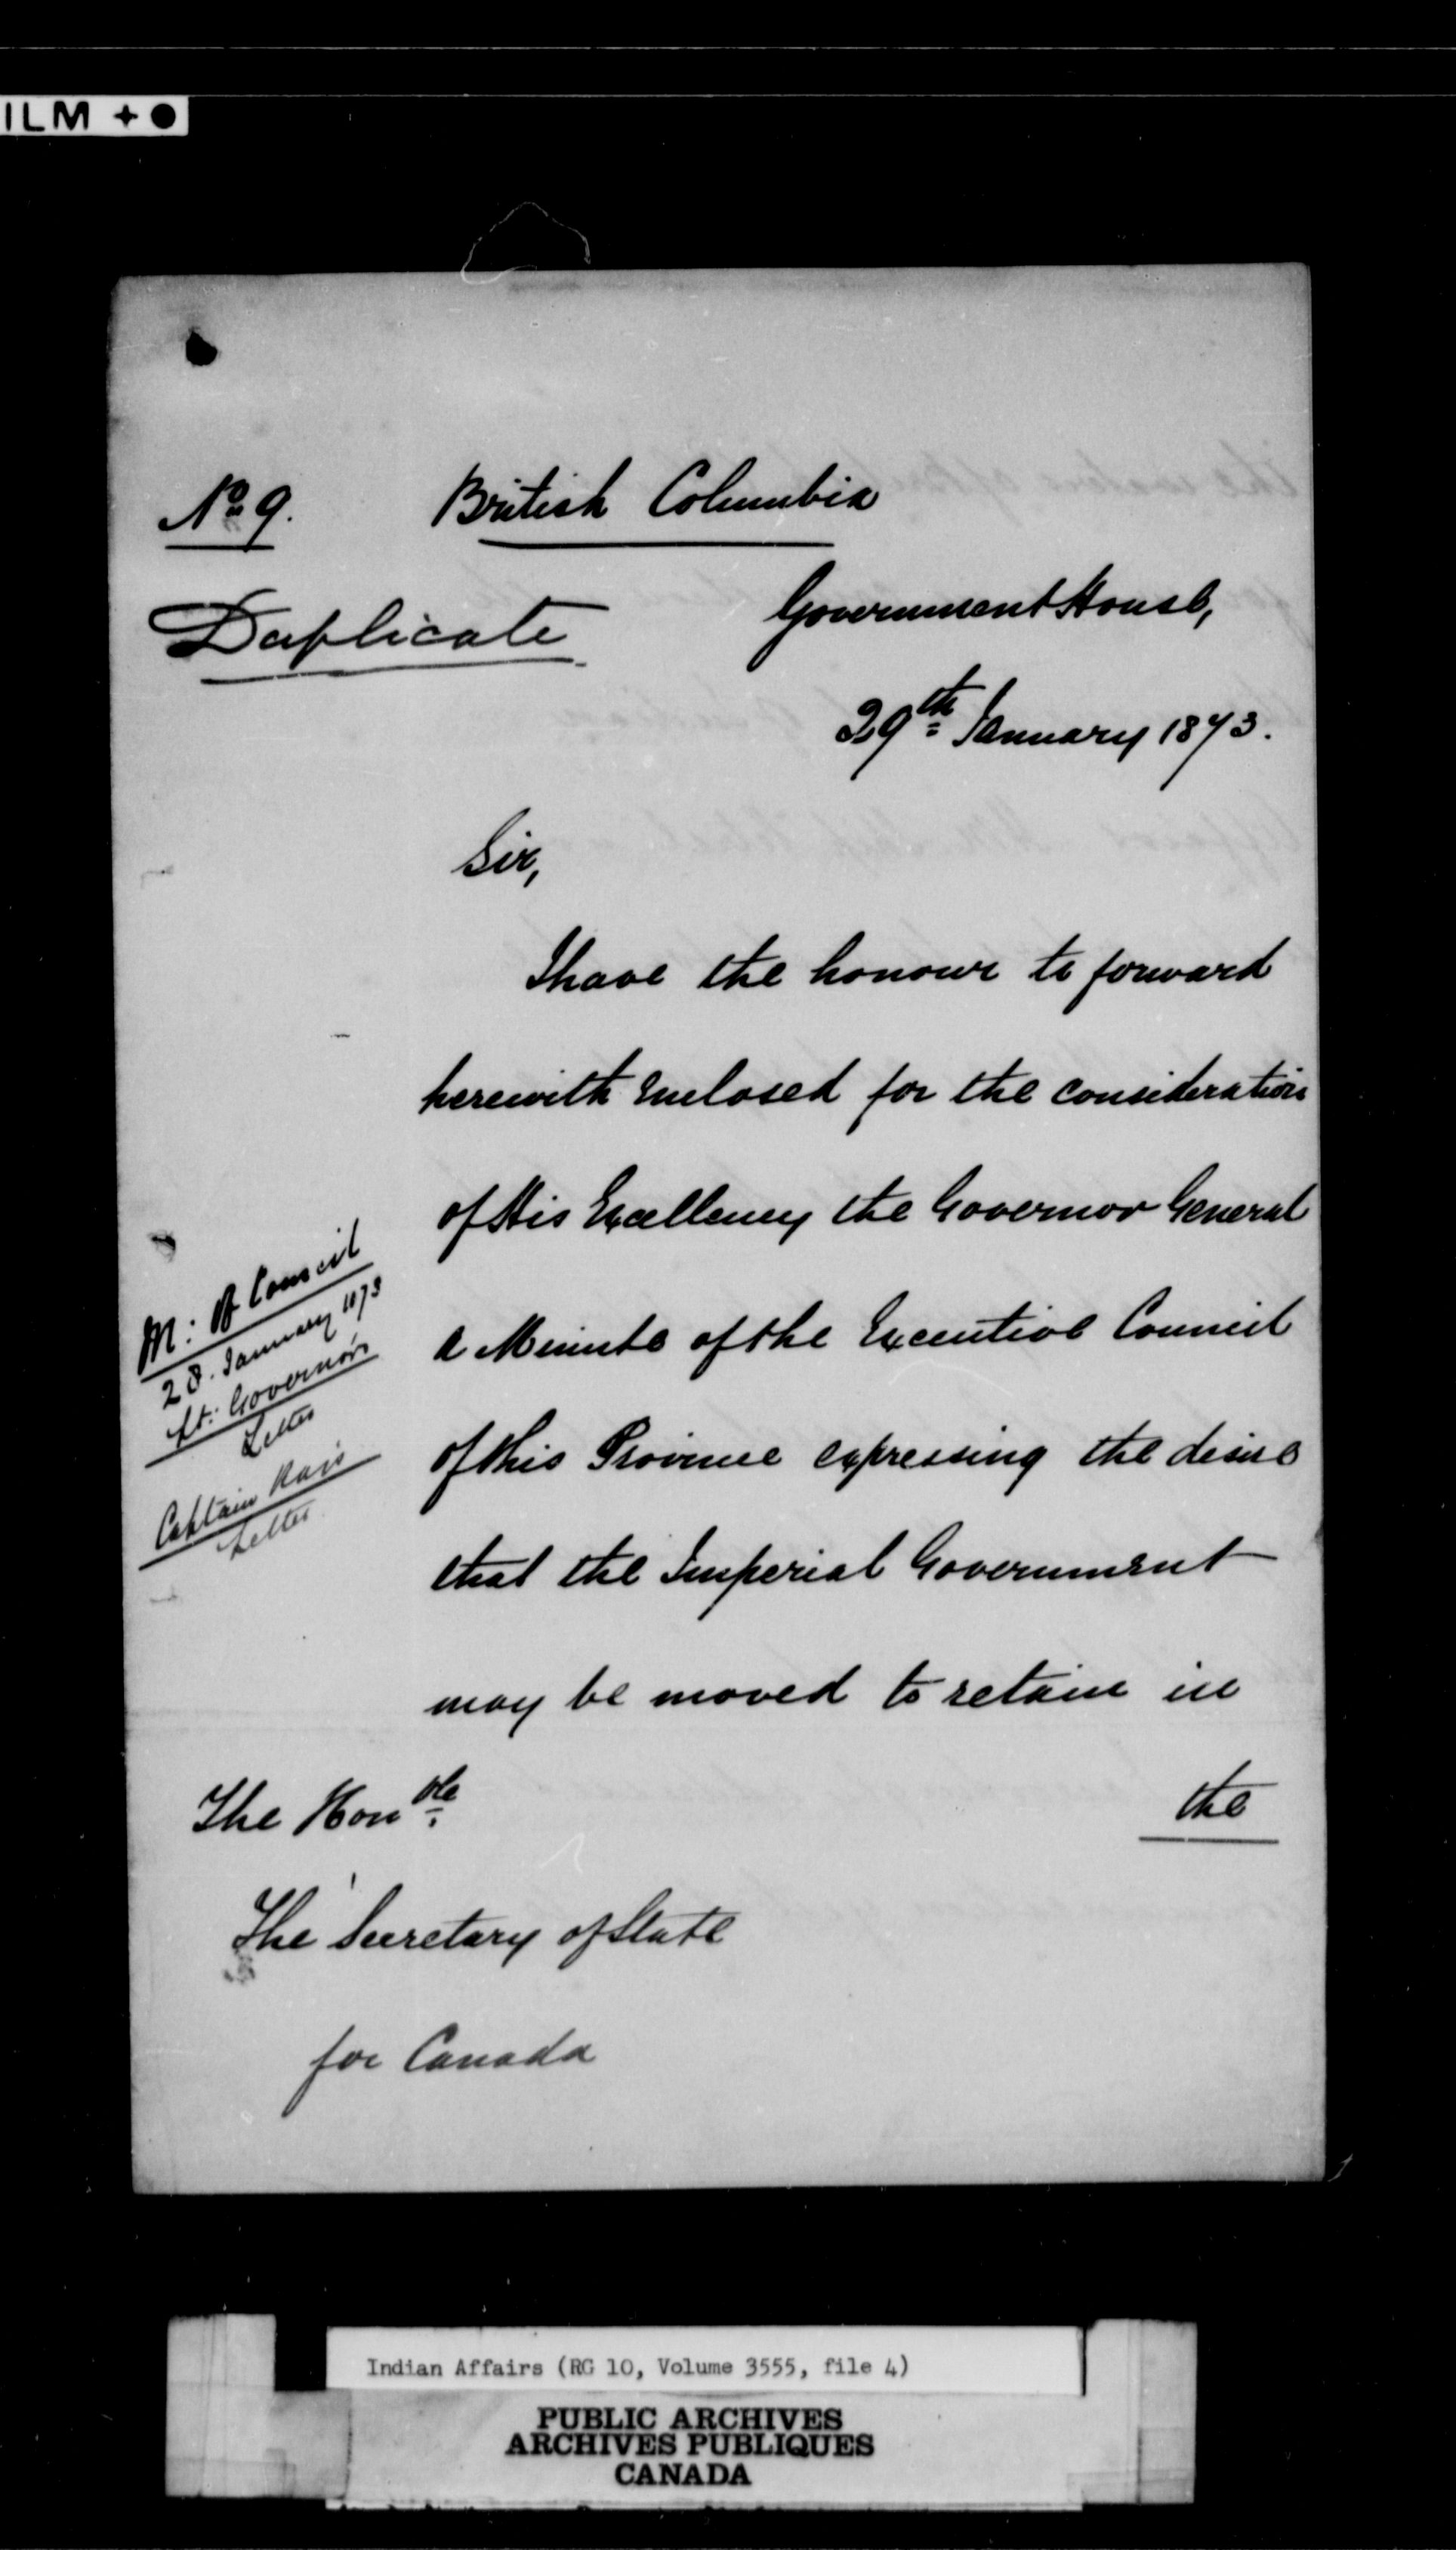 ILM
No 9.
British Columbia
Duplicate
Government House,
29th January 1873.
Sir,
I have the honour to forward
herewith Enclosed for the consideration
of His Excellency the Governor General
a Minute of the Executive Council
of this Province expressing the desire
that the Imperial Government
may be moved to retain in
the
M: of Council
28. January 1873
Lt: Governor's
Letter
Captain
Letter
The Honble
The Secretary of State
for Canada
Indian Affairs (RG 10, Volume 3555, file 4)
PUBLIC ARCHIVES
ARCHIVES PUBLIQUES
CANADA